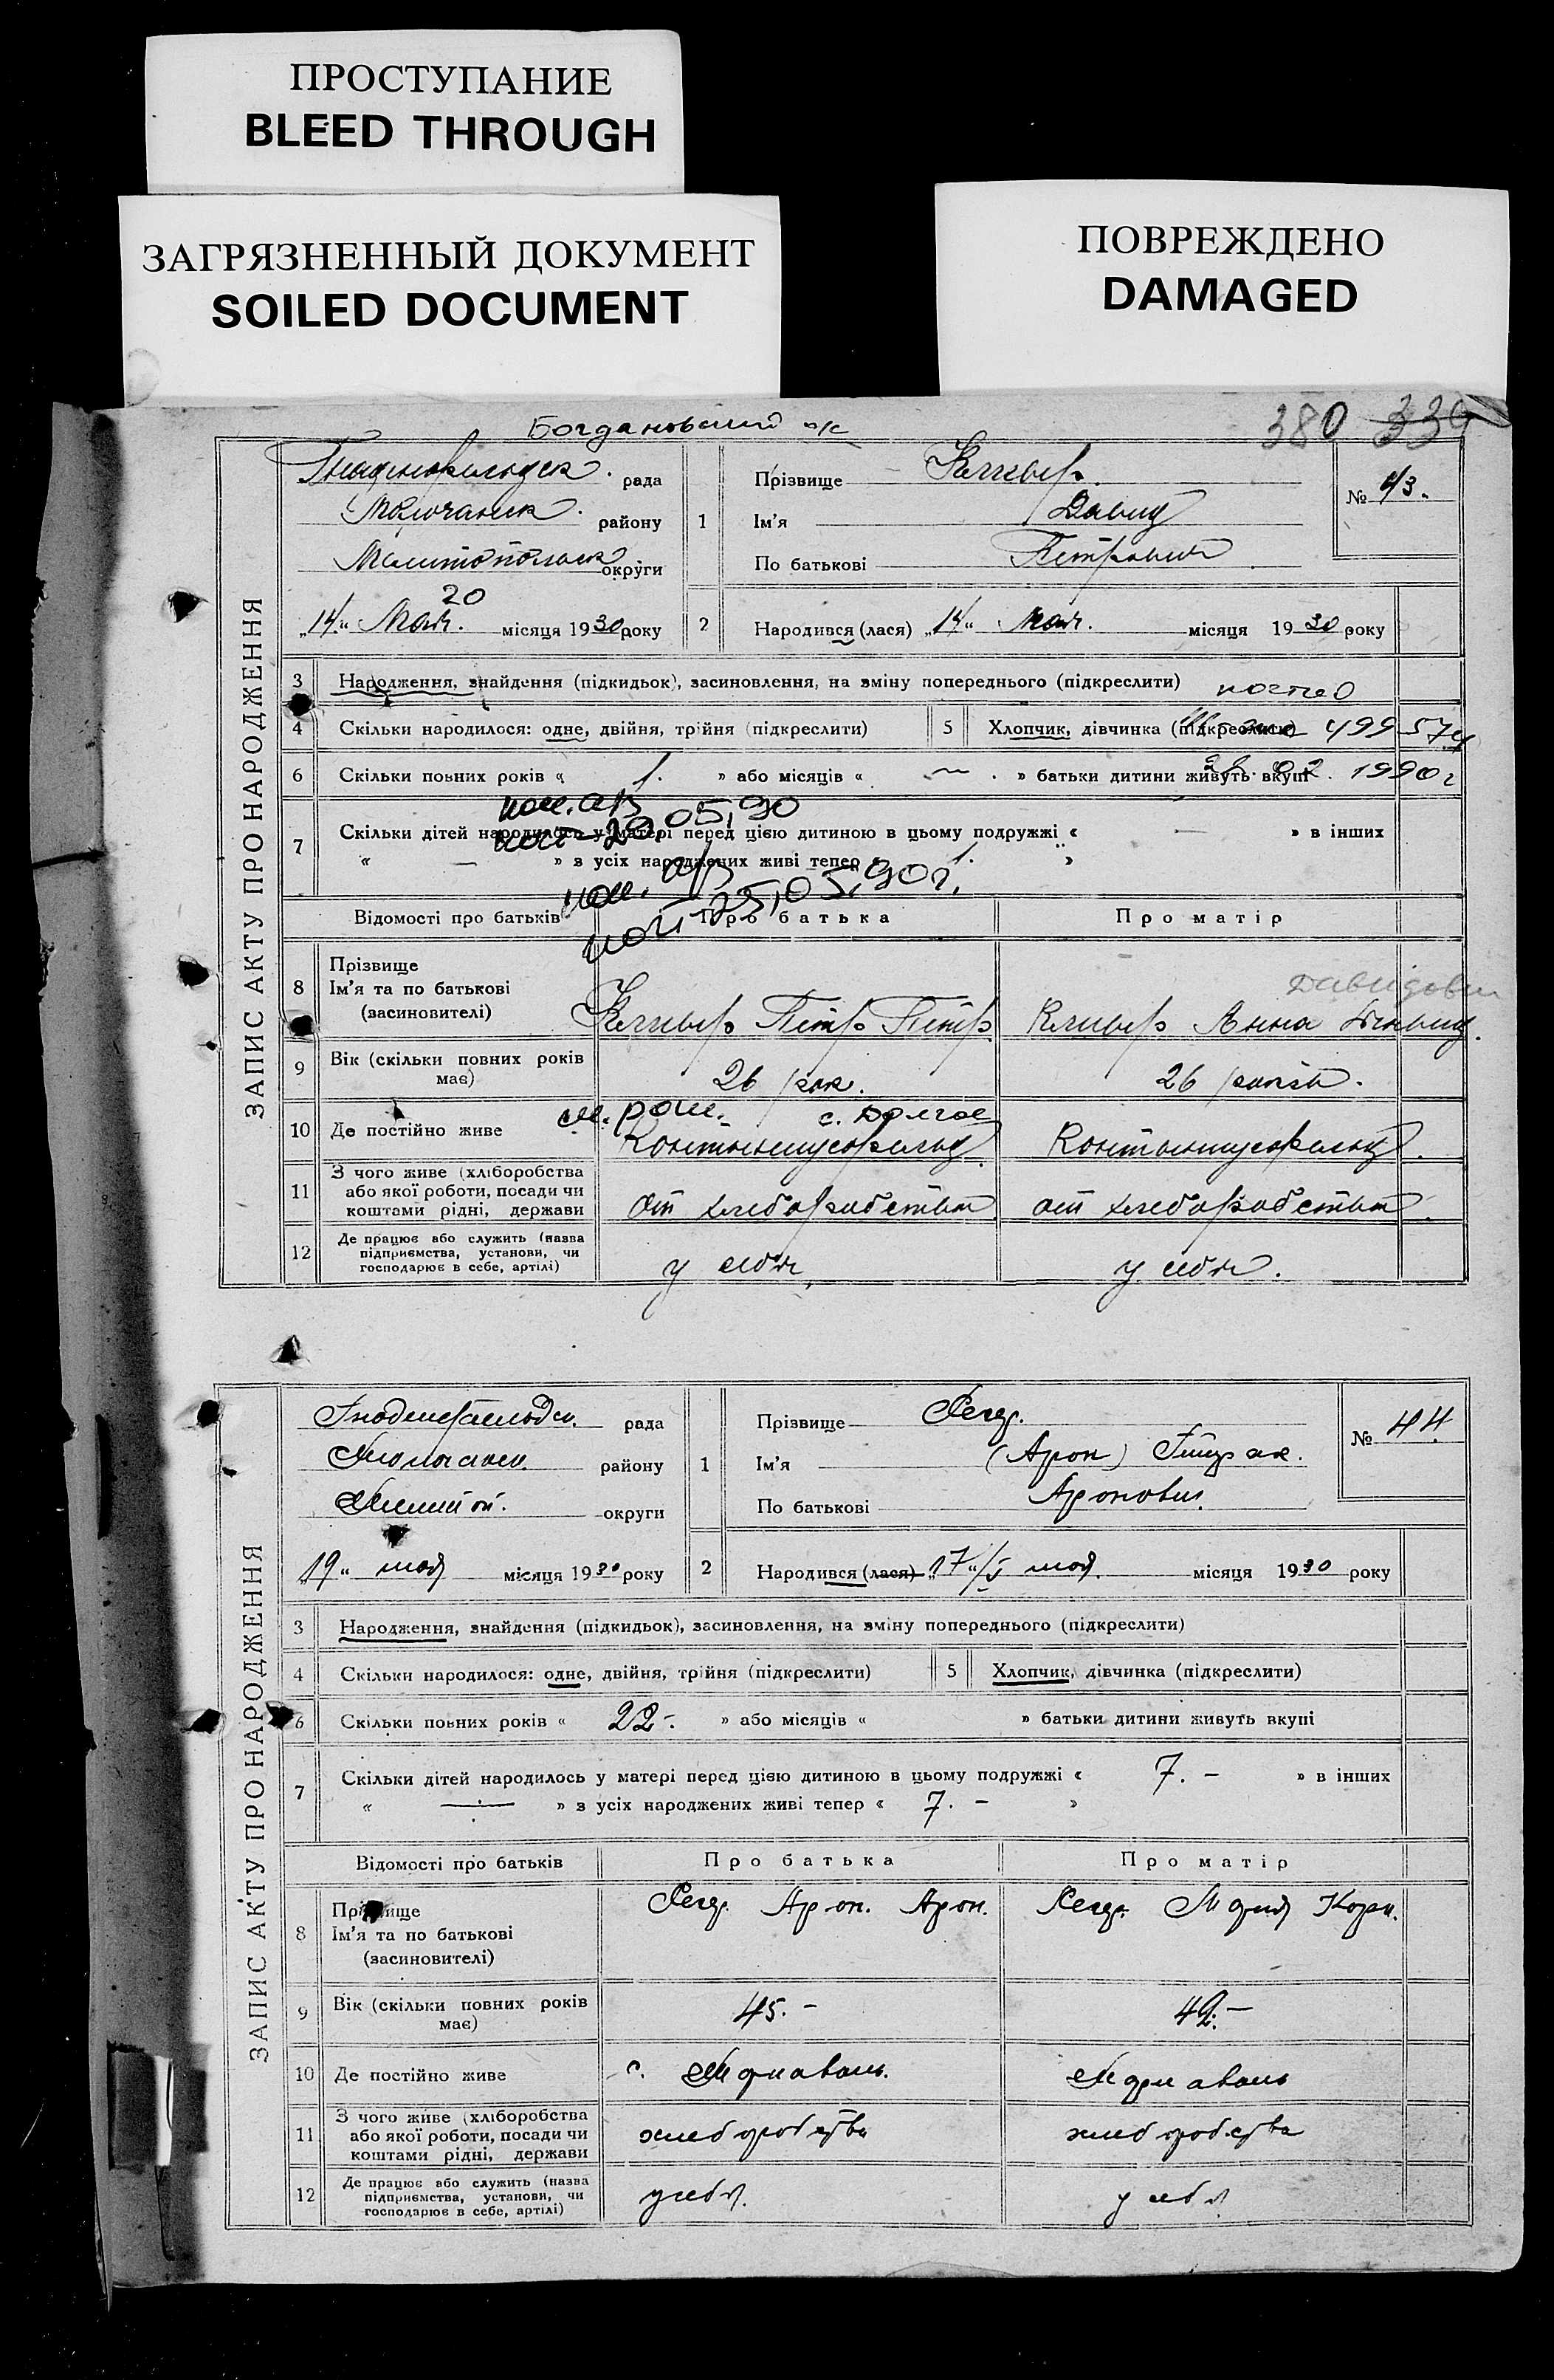 ПРОСТУПАНИЕ
BLEED THROUGH
ЗАГРЯЗНЕННЫЙ ДОКУМЕНТ
SOILED DOCUMENT
ПОВРЕЖДЕНО
DAMAGED
Богдановский с/с
380 339
ЗАПИС АКТУ ПРО НАРОДЖЕННЯ
рада
району
Мелитопольск округи
20
„14“ Мая. місяця 1930 року
1 Прізвище
Ім'я Давид
По батькові Петрович
№ 43.
2 Народився (лася) „14“ Мая. місяця 1930 року
3 Народження, знайдення (підкидьок), засиновлення, на зміну попереднього (підкреслити)
4 Скільки народилося: одне, двійня, трійня (підкреслити)
5 Хлопчик, дівчинка (підкреслити) 499574
6 Скільки повних років « 1. » або місяців « — . » батьки дитини живуть вкупі . 02. 1990 г
20.05.90
7 Скільки дітей народилось у матері перед цією дитиною в цьому подружжі « — » в інших
« — » з усіх народжених живі тепер « 1. »
25.05.90г.
Відомості про батьків Про батька Про матір
Давидовн
8 Прізвище
Ім'я та по батькові
(засиновителі)
Петр Петр. Анна Давид.
9 Вік (скільки повних років має) 26 26
м. рош. с. Долгое
10 Де постійно живе
11 З чого живе (хліборобства або якої роботи, посади чи коштами рідні, держави от хлеборобства от хлеборобства.
12 Де працює або служить (назва підприємства, установи, чи господарює в себе, артілі) у себя, у себя.
ЗАПИС АКТУ ПРО НАРОДЖЕННЯ
рада
району
округи
„19“ мая місяця 1930 року
1 Прізвище
Ім'я (Арон)
По батькові Аронович.
№ 44.
2 Народився (лася) „17“/V мая. місяця 1930 року
3 Народження, знайдення (підкидьок), засиновлення, на зміну попереднього (підкреслити)
4 Скільки народилося: одне, двійня, трійня (підкреслити)
5 Хлопчик, дівчинка (підкреслити)
6 Скільки повних років « 22-. » або місяців « » батьки дитини живуть вкупі
7 Скільки дітей народилось у матері перед цією дитиною в цьому подружжі « 7. - » в інших
« — » з усіх народжених живі тепер « 7. - »
Відомості про батьків Про батька Про матір
8 Прізвище
Ім'я та по батькові
(засиновителі)
Арон. Арон. Мария Корн.
9 Вік (скільки повних років має) 45.- 42.-
10 Де постійно живе с. Мариаволь. Мариаволь
11 З чого живе (хліборобства або якої роботи, посади чи коштами рідні, держави хлеборобства хлеборобства
12 Де працює або служить (назва підприємства, установи, чи господарює в себе, артілі) у себя. у себя